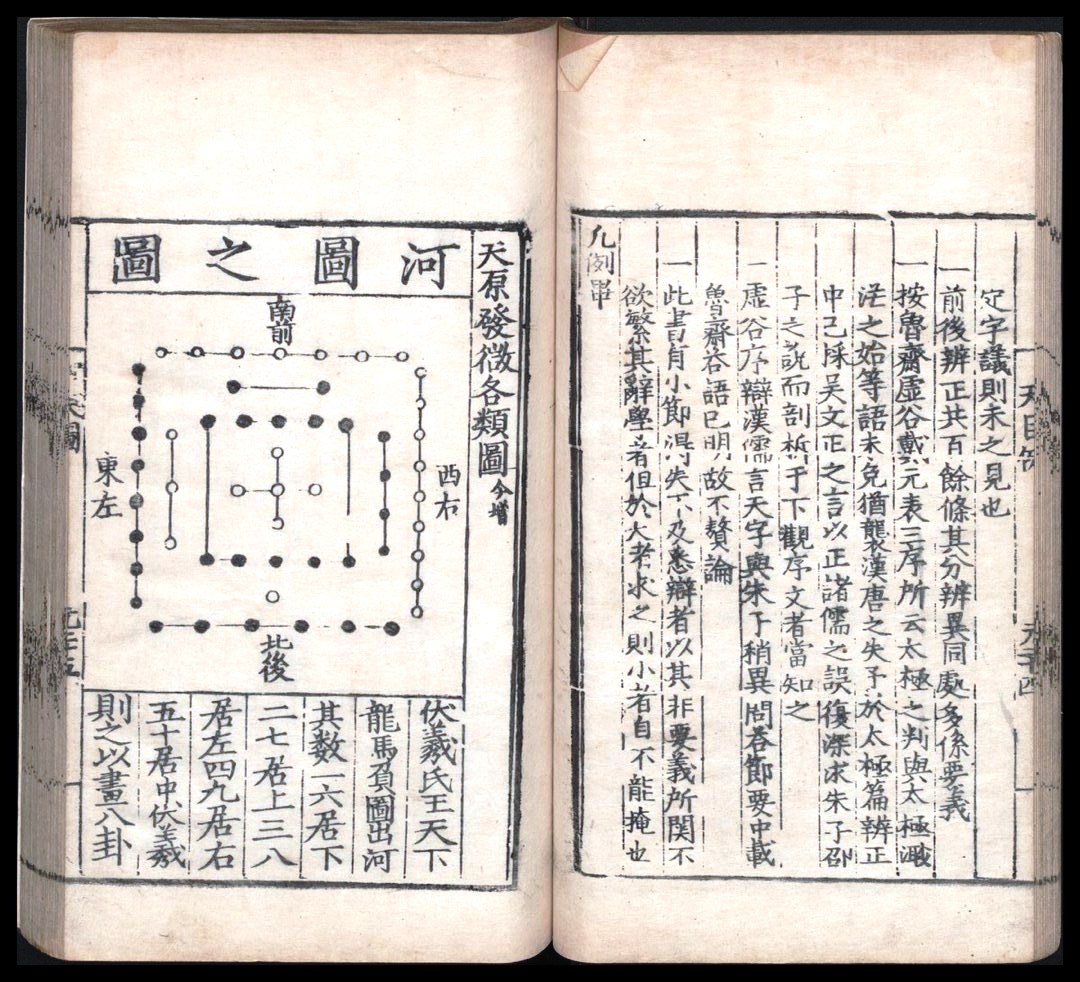 定字議則未之見也
一前後辨正共百餘條其分辨異同處多係要義
一按魯齋虛谷戴元表三序所云太極之判與太極溷
茫之始等語未免猶襲漢唐之失予於太極篇辨正
中已採吳文正之言以正諸儒之誤復深求朱子邵
子之說而剖析于下觀序文者當知之
一虛谷序辯漢儒言天字與朱子稍異問荅節要中載
魯齋荅語已明故不贅論
一此書有小節得失不及悉辯者以其非要義所關不
欲繁其辭學者但於大者求之則小者自不能掩也
凡例畢
天原發微各類圖今增
河圖之圖
南前
西右
東左
北後
伏羲氏王天下
龍馬負圖出河
其数一六居下
二七居上三八
居左四九居右
五十居中伏羲
則之以畫八卦